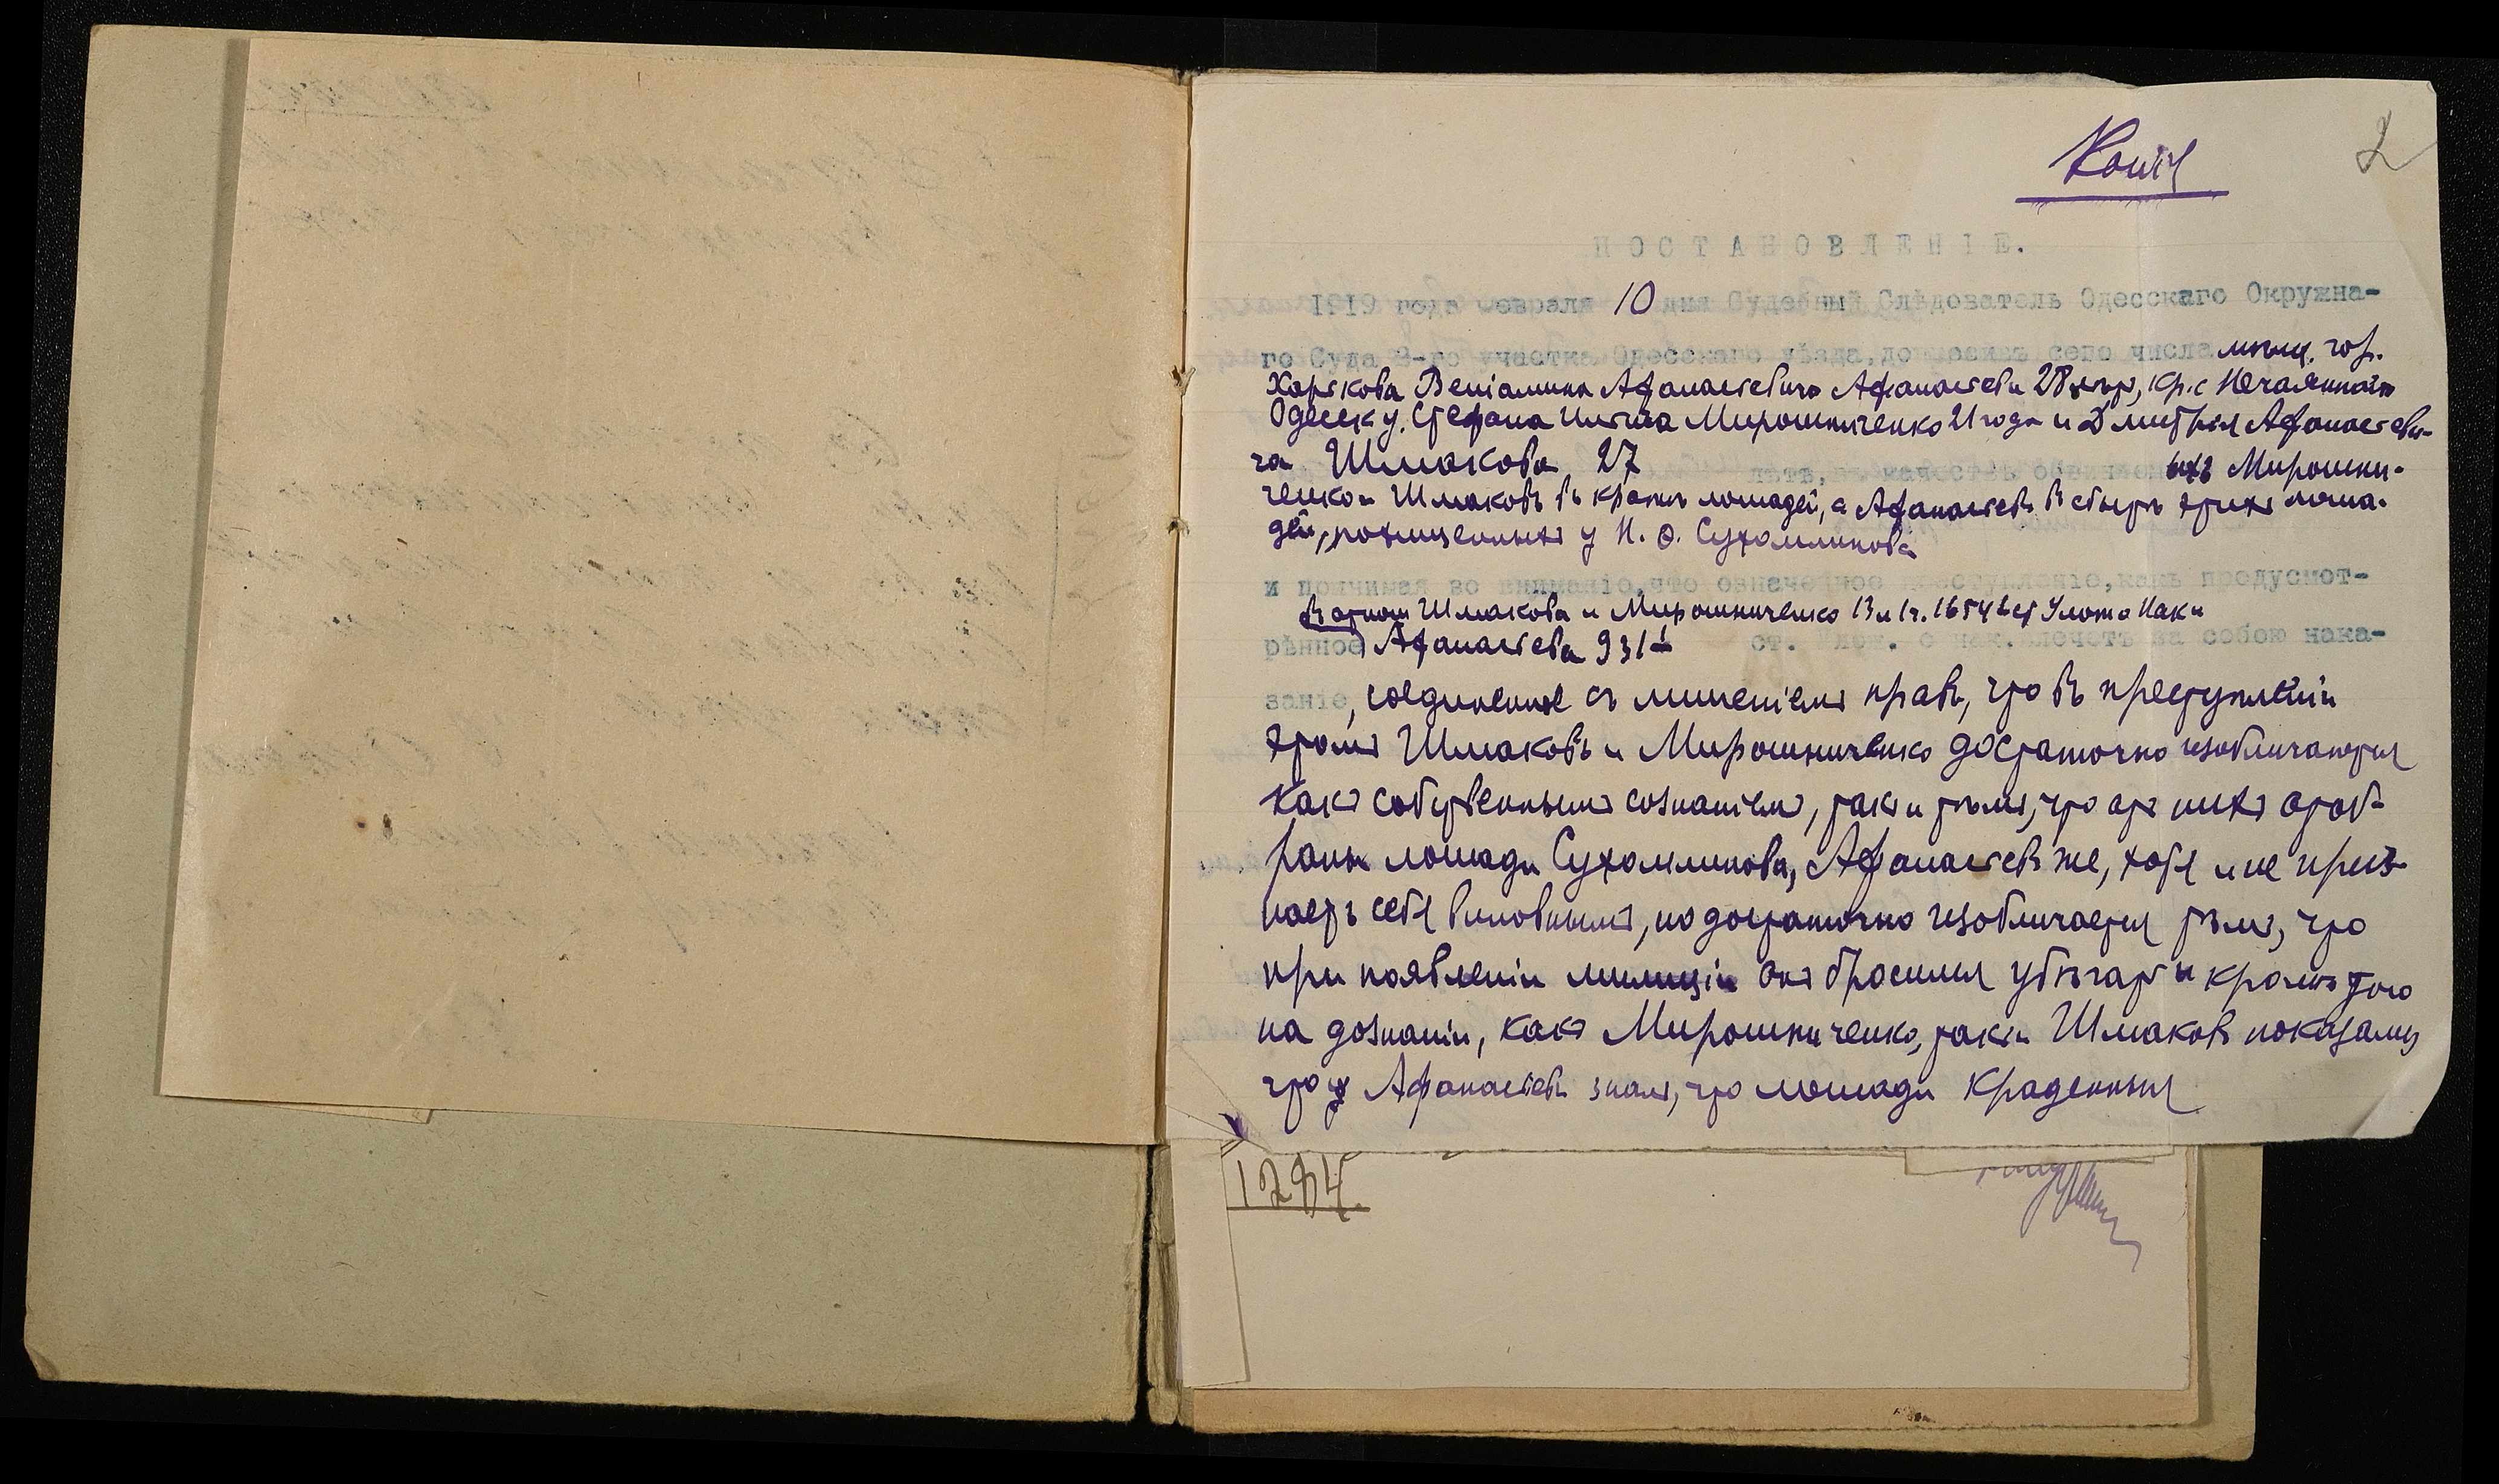 Копія
2
ПОСТАНОВЛЕНІЕ.
1919 года февраля 10 дня Судебный Слѣдователь Одесскаго Окружна-
го Суда 2-го участка Одесскаго уѣзда, допросивъ сего числа мѣщ. гор.
Харькова Веніамина Афанасьевича Афанасьева 28 лѣтъ, кр. с. Нечаяннаго
Одесск у. Стефана Ильича Мирошниченко 21 года и Дмитрія Афанасьеви-
ча Шмакова 27 лѣтъ, въ качествѣ обвиняемыхъ Мирошни-
ченко и Шмаковъ въ кражѣ лошадей, а Афанасьевъ въ сбытѣ этихъ лоша-
дей, похищенныхъ у И. Ф. Сухомлинова
и принимая во вниманіе, что означенное преступленіе, какъ предусмот-
въ отнош Шмакова и Мирошниченко 13 и 1 ч. 1654 ст Улож о Нак и
рѣнное Афанасьева 931 ст. Улож. о нак. влечетъ за собою нака-
заніе, соединенное съ лишеніемъ правъ, что въ преступленіи
этомъ Шмаковъ и Мирошниченко достаточно изобличаются
какъ собственнымъ сознаніемъ, такъ и тѣмъ, что отъ нихъ отоб-
раны лошади Сухомлинова, Афанасьевъ же, хотя и не приз-
наетъ себя виновнымъ, но достаточно изобличается тѣмъ, что
при появленіи милиціи онъ бросился убѣгать и кромѣ того
на дознаніи, какъ Мирошниченко, такъ и Шмаковъ показали,
что Афанасьевъ зналъ, что лошади краденныя
1284.